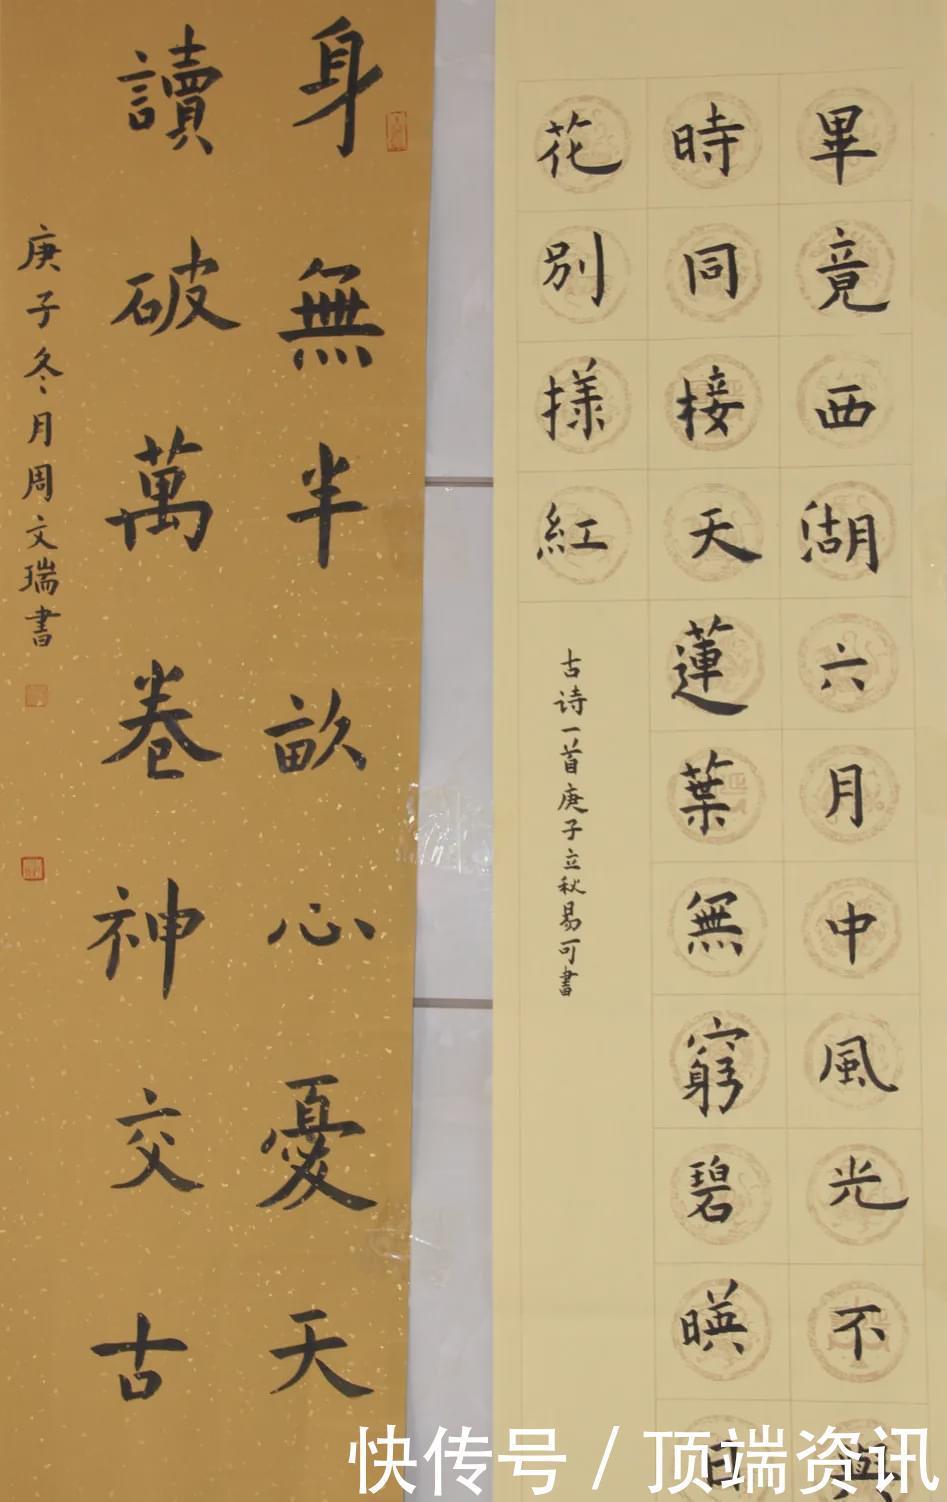 畢竟西湖六月中風光不與
時同接天蓮葉無窮碧暎日
花別様紅
古诗一首庚子立秋易可書
身無半畝心憂天
讀破萬卷神交古
庚子冬月周文瑞書
快传号 / 顶端资讯